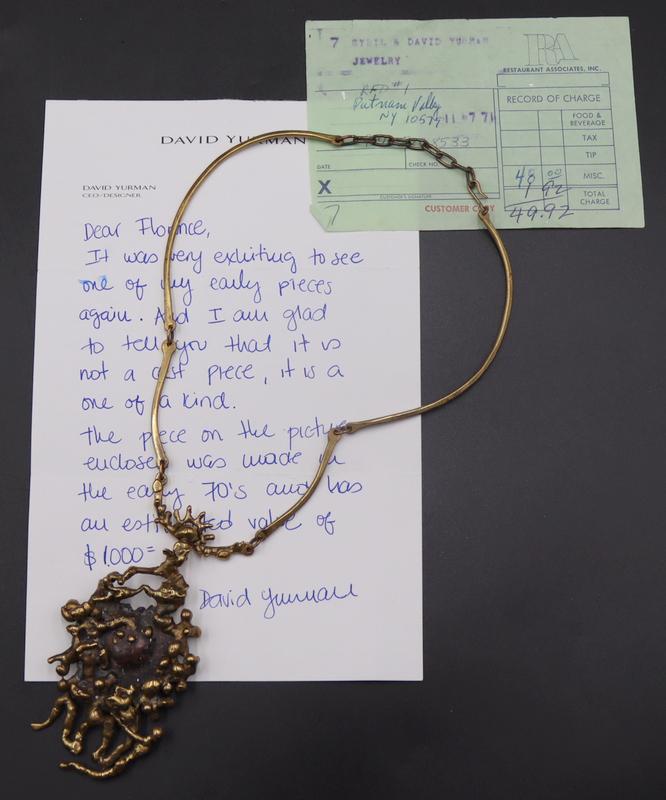 7 SYBIL & DAVID YURMAN
JEWELRY
RFD #1
Putnam Valley
NY 10579
11 07 71
8533
DATE
CHECK NO.
X
CUSTOMER'S SIGNATURE
CUSTOMER COPY
RA
RESTAURANT ASSOCIATES, INC.
RECORD OF CHARGE
FOOD & BEVERAGE
TAX
TIP
48 00 MISC.
1 92
49.92 TOTAL CHARGE
DAVID YURMAN
DAVID YURMAN
CEO-DESIGNER
Dear Florence,
It was very exhiting to see
one of my early pieces
again. And I am glad
to tell you that it is
not a cast piece, it is a
one of a kind.
The piece on the picture
enclosed was made in
the early 70's and has
an estimated value of
$1,000=
David Yurman